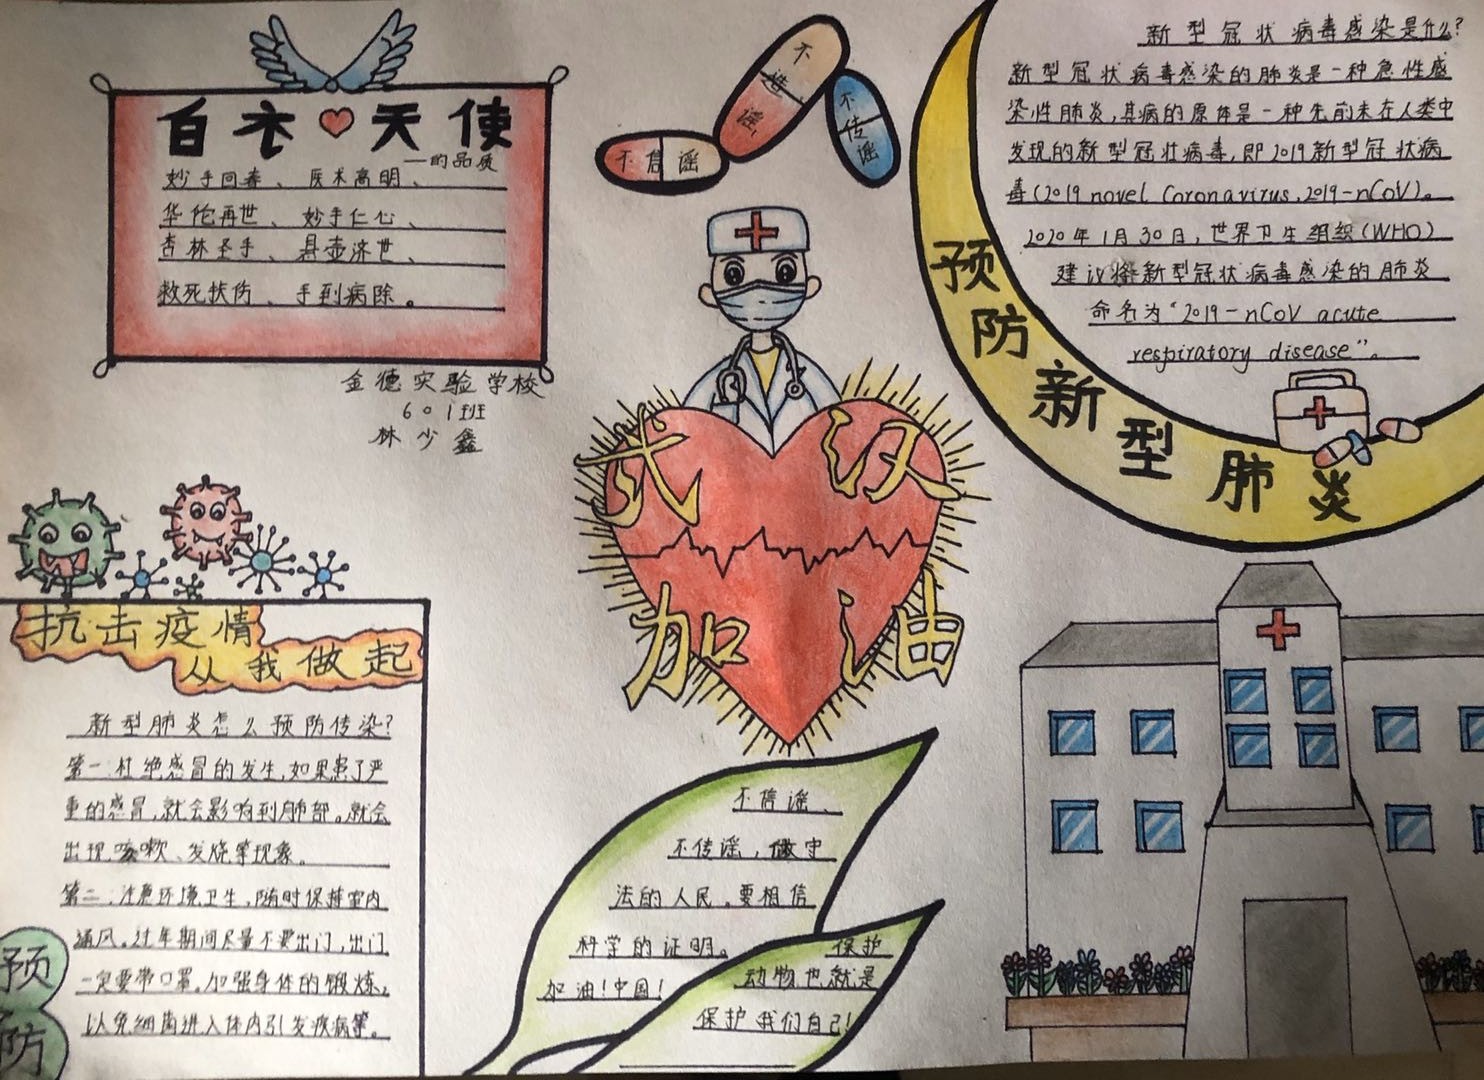 白衣天使
——的品质
妙手回春、医术高明、
华佗再世、妙手仁心、
杏林圣手、悬壶济世、
救死扶伤、手到病除。
金德实验学校
601班
林少鑫
不信谣
不造谣,
不传谣
新型冠状病毒感染是什么?
新型冠状病毒感染的肺炎是一种急性感
染性肺炎,其病的原体是一种先前未在人类中
发现的新型冠状病毒,即2019新型冠状病
毒(2019 novel Coronavirus,2019-nCoV)。
2020年1月30日,世界卫生组织(WHO)
建议将新型冠状病毒感染的肺炎
命名为“2019-nCoV acute
respiratory disease”。
预防新型肺炎
武汉
加油
抗击疫情
从我做起
新型肺炎怎么预防传染?
第一:杜绝感冒的发生,如果患了严
重的感冒,就会影响到肺部。就会
出现咳嗽、发烧等现象。
第二:注意环境卫生,随时保持室内
通风。过年期间尽量不要出门,出门
一定要带口罩。加强身体的锻炼,
以免细菌进入体内引发疾病等。
预
防
不信谣、
不传谣,做守
法的人民。要相信
科学的证明。
加油!中国!
保护
动物也就是
保护我们自己!